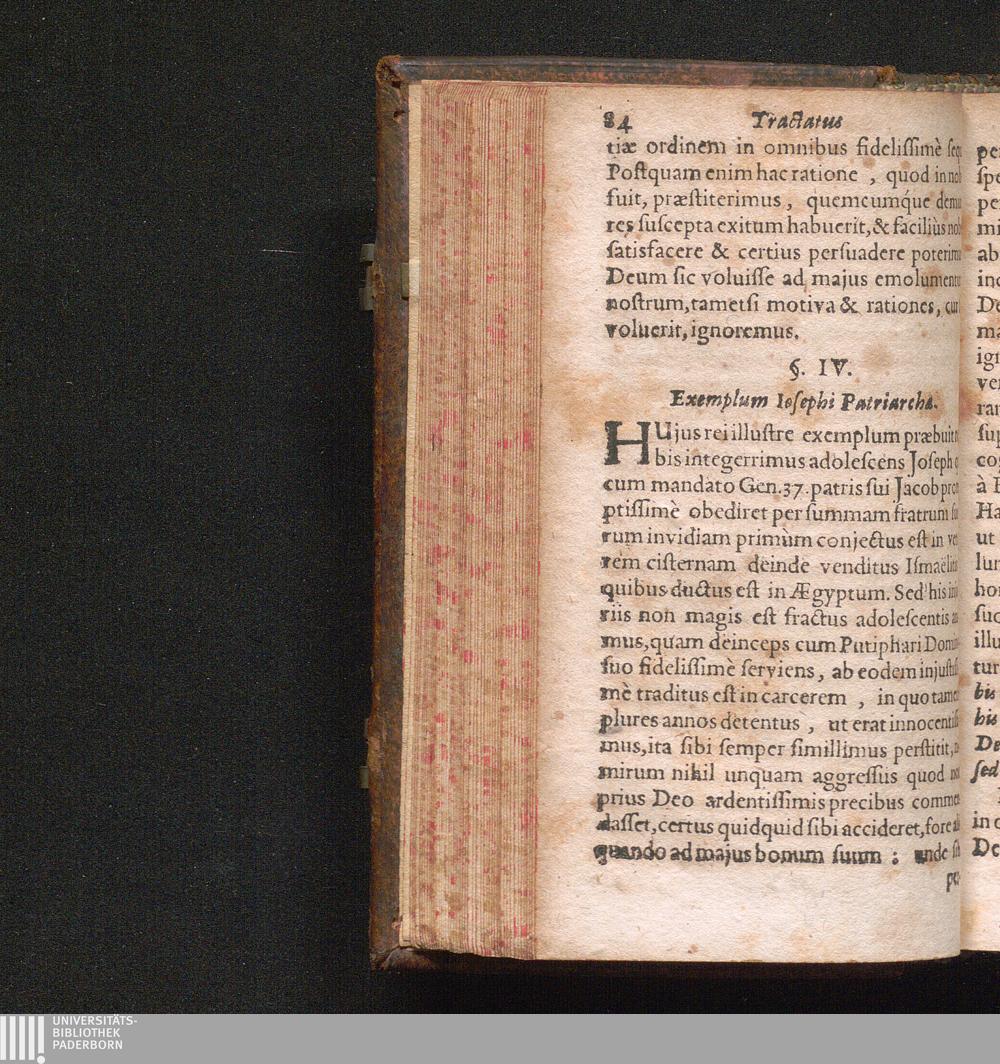 84 Tractatus
tiæ ordinem in omnibus fidelissimè
Postquam enim hac ratione , quod in
fuit, præstiterimus, quemcumque
res suscepta exitum habuerit, & faciliùs
satisfacere & certius persuadere
Deum sic voluisse ad majus
nostrum, tametsi motiva & rationes,
voluerit, ignoremus.
§. IV.
Exemplum Iosephi Patriarchæ.
HUjus rei illustre exemplum præbuit
bis integerrimus adolescens Joseph
cum mandato Gen. 37. patris sui Jacob
ptissimè obediret per summam fratrum
rum invidiam primùm conjectus est in
rem cisternam deinde venditus
quibus ductus est in Ægyptum. Sed his
riis non magis est fractus adolescentis
mus, quam deinceps cum Putiphari
suo fidelissimè serviens, ab eodem
mè traditus est in carcerem , in quo
plures annos detentus , ut erat
mus, ita sibi semper simillimus perstitit,
mirum nihil unquam aggressus quod
prius Deo ardentissimis precibus
dasset, certus quidquid sibi accideret, fore
quando ad majus bonum suum : unde
ut
bis
his
sed
UNIVERSITÄTS-
BIBLIOTHEK
PADERBORN